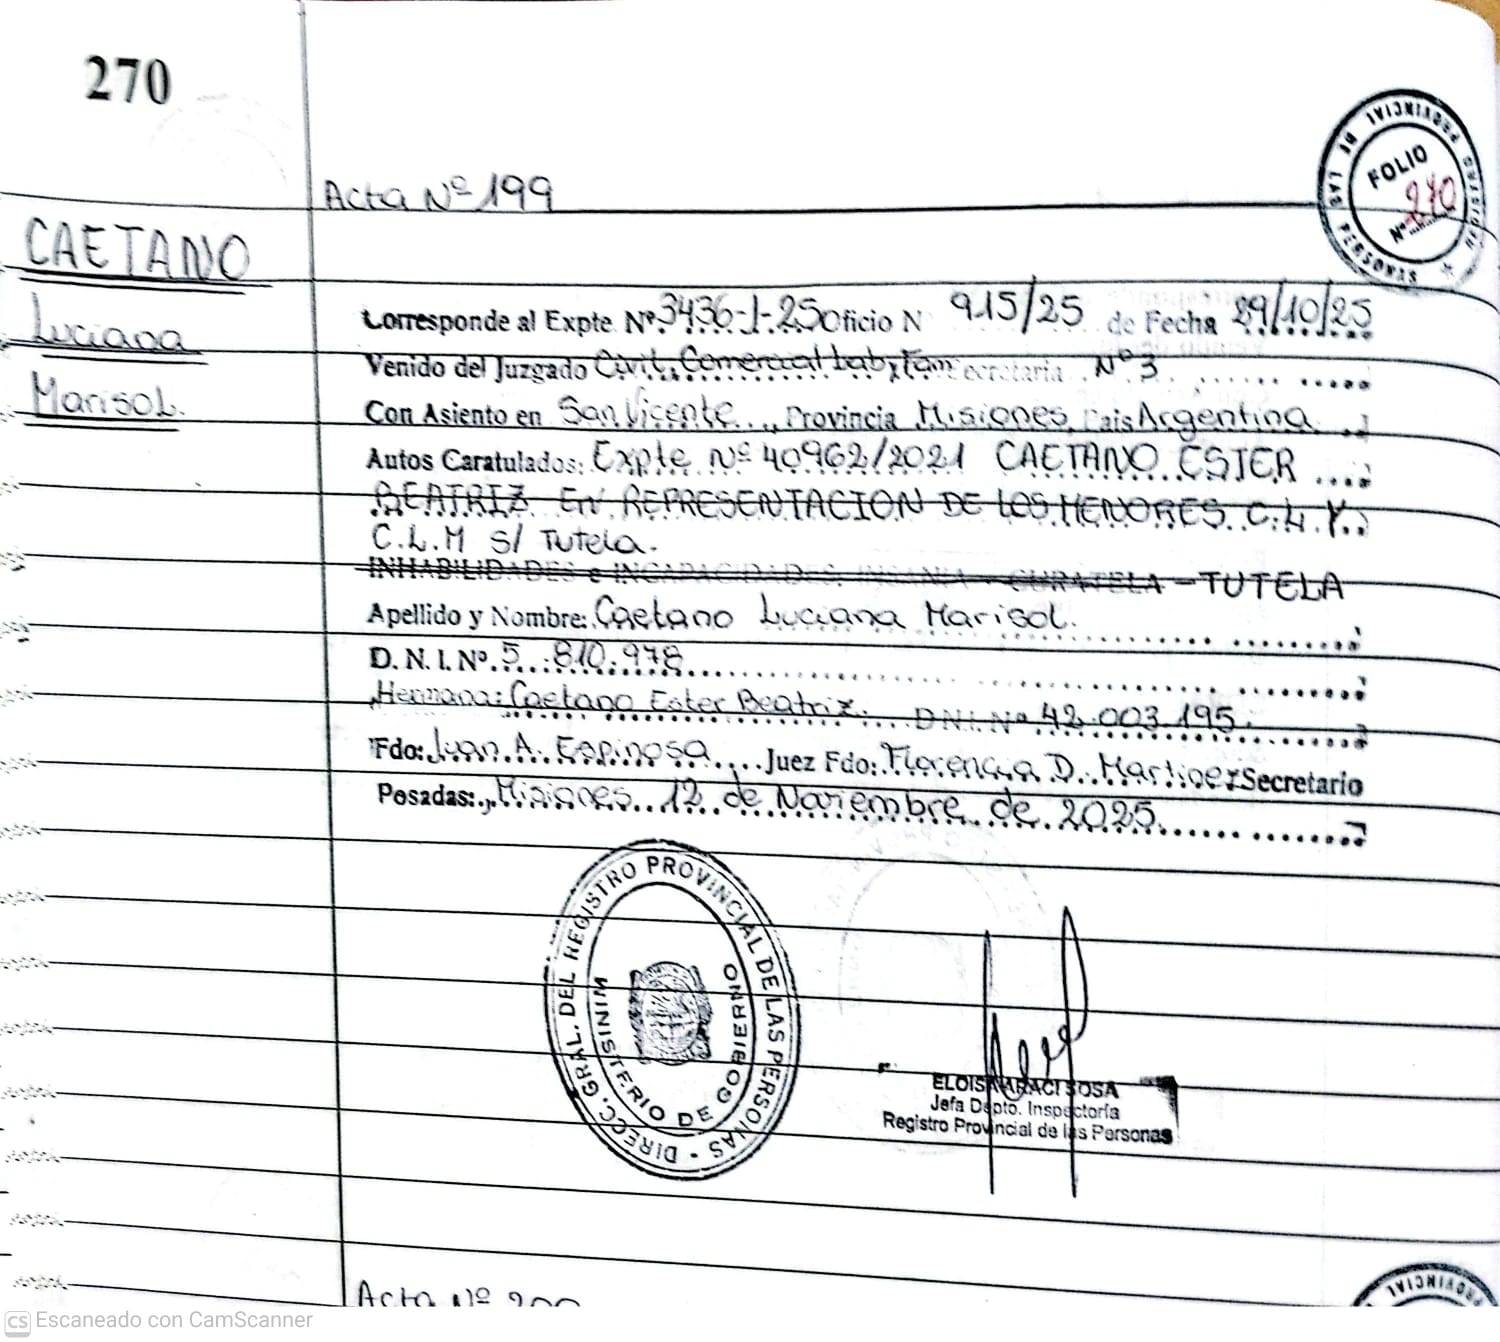 270
PROVINCIAL
REGISTRO
DE LAS PERSONAS
FOLIO
Nº 270
Acta Nº 199
CAETANO
Luciana
Marisol.
Corresponde al Expte Nº 3436-J-25 Oficio N 915/25 de Fecha 29/10/25
Venido del Juzgado Civil, Comercial Lab y Fam Secretaria Nº 3
Con Asiento en San Vicente, Provincia Misiones, Pais Argentina
Autos Caratulados: Expte Nº 40962/2021 CAETANO ESTER
BEATRIZ EN REPRESENTACION DE LOS MENORES C.L.Y.
C.L.M S/ Tutela.
INHABILIDADES e INCAPACIDADES, INSANIA - CURATELA - TUTELA
Apellido y Nombre: Caetano Luciana Marisol.
D. N. I. Nº. 5 810.978
Hermana: Caetano Ester Beatriz. DNI. Nº 42.003.195.
Fdo: Juan A. Espinosa Juez Fdo: Florencia D. Martinez Secretario
Posadas:., Misiones 12 de Noviembre de 2025
DIRECC. GRAL. DEL REGISTRO PROVINCIAL DE LAS PERSONAS
MINISTERIO DE GOBIERNO
ELOISA ARACI SOSA
Jefa Depto. Inspectoría
Registro Provincial de las Personas
Acta Nº 200
PROVINCIAL
CS Escaneado con CamScanner